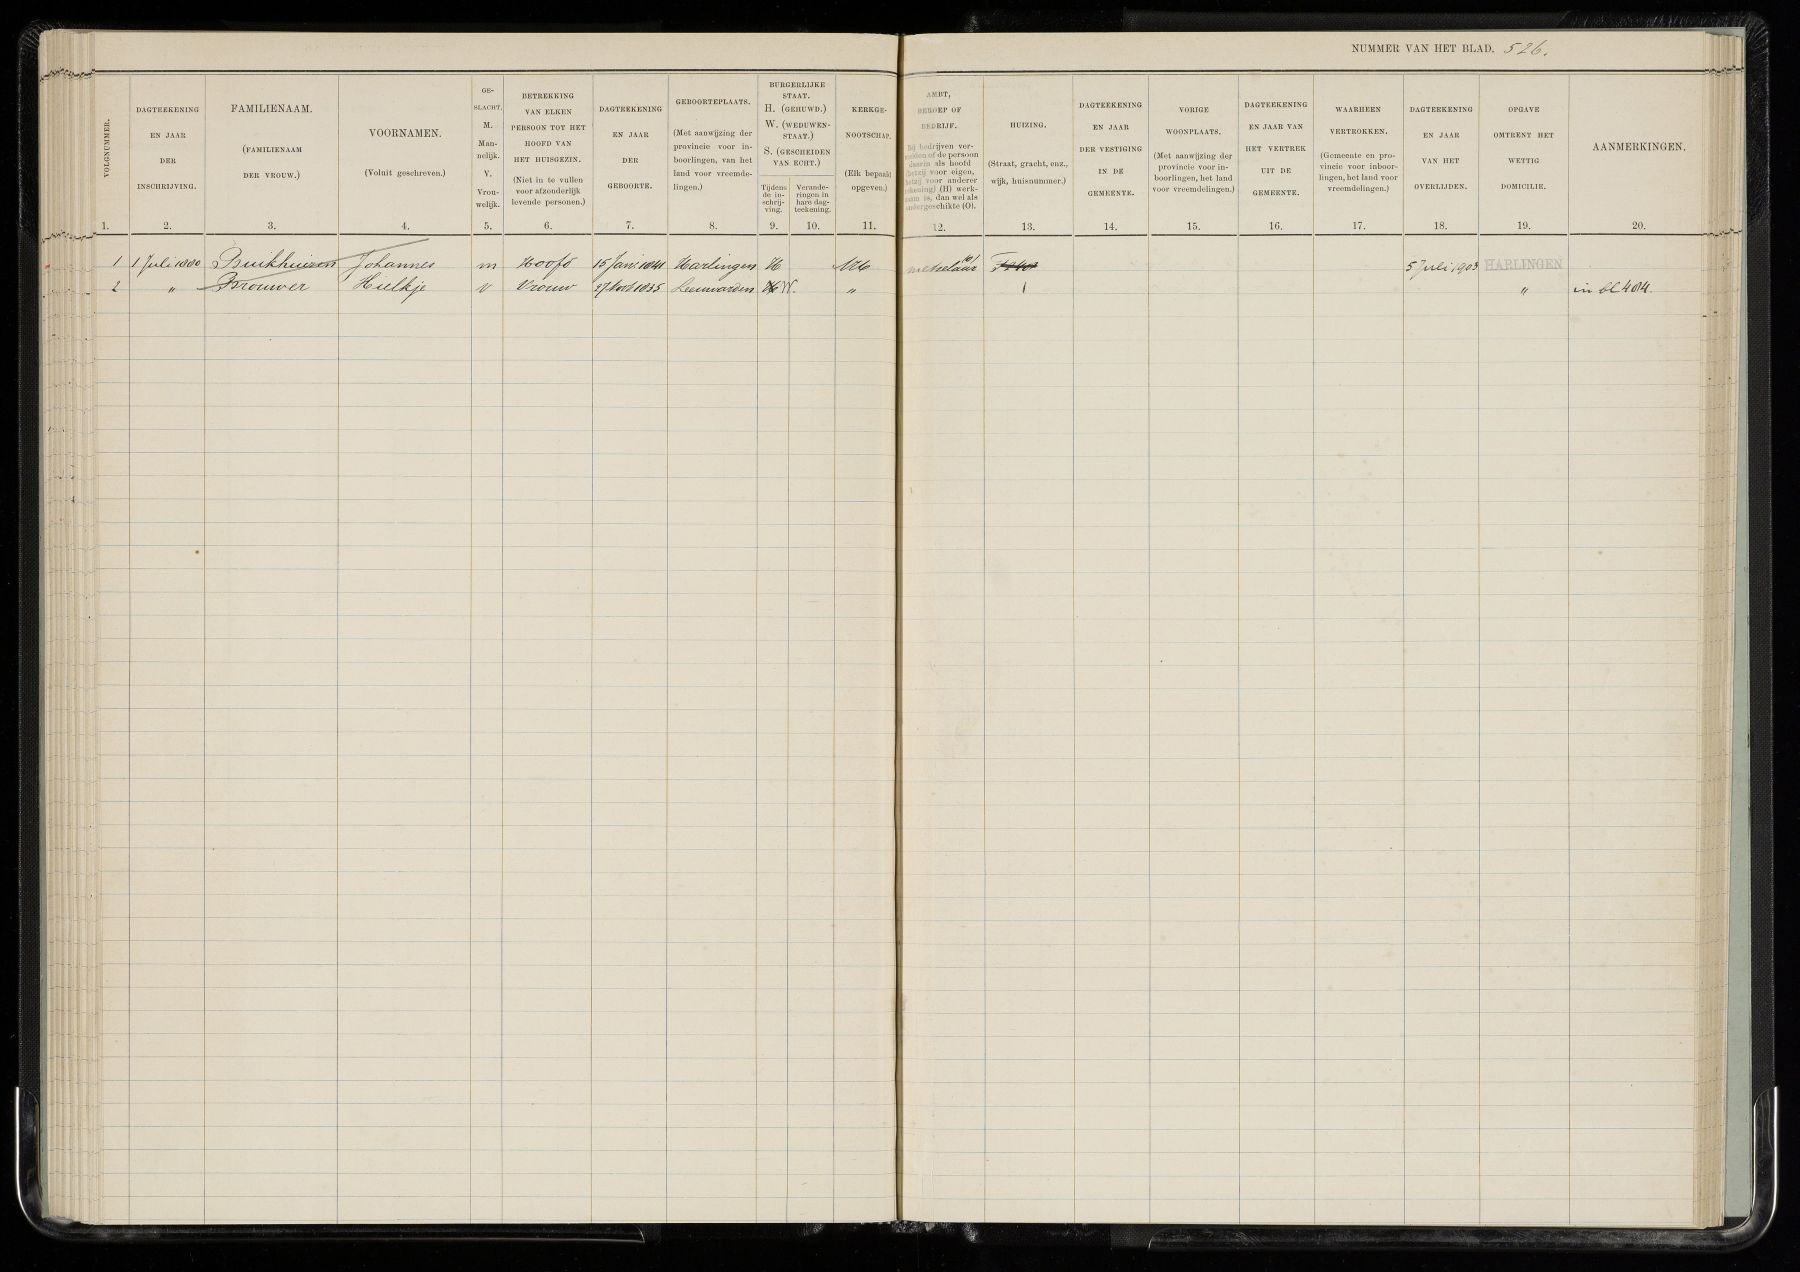 NUMMER VAN HET BLAD. 526.
VOLGNUMMER.
1.
DAGTEEKENING
EN JAAR
DER
INSCHRIJVING.
2.
FAMILIENAAM.
(FAMILIENAAM
DER VROUW.)
3.
VOORNAMEN.
(Voluit geschreven.)
4.
GE-
SLACHT.
M.
Man-
nelijk.
V.
Vrou-
welijk.
5.
BETREKKING
VAN ELKEN
PERSOON TOT HET
HOOFD VAN
HET HUISGEZIN.
(Niet in te vullen
voor afzonderlijk
levende personen.)
6.
DAGTEEKENING
EN JAAR
DER
GEBOORTE.
7.
GEBOORTEPLAATS.
(Met aanwijzing der
provincie voor in-
boorlingen, van het
land voor vreemde-
lingen.)
8.
BURGERLIJKE
STAAT.
H. (GEHUWD.)
W. (WEDUWEN-
STAAT.)
S. (GESCHEIDEN
VAN ECHT.)
Tijdens
de in-
schrij-
ving.
9.
Verande-
ringen in
hare dag-
teekening.
10.
KERKGE-
NOOTSCHAP.
(Elk bepaald
opgeven.)
11.
AMBT,
BEROEP OF
BEDRIJF.
Bij bedrijven ver-
melden of de persoon
daarin als hoofd
(hetzij voor eigen,
hetzij voor anderer
rekening) (H) werk-
zaam is, dan wel als
ondergeschikte (O).
12.
HUIZING.
(Straat, gracht, enz.,
wijk, huisnummer.)
13.
DAGTEEKENING
EN JAAR
DER VESTIGING
IN DE
GEMEENTE.
14.
VORIGE
WOONPLAATS.
(Met aanwijzing der
provincie voor in-
boorlingen, het land
voor vreemdelingen.)
15.
DAGTEEKENING
EN JAAR VAN
HET VERTREK
UIT DE
GEMEENTE.
16.
WAARHEEN
VERTROKKEN.
(Gemeente en pro-
vincie voor inboor-
lingen, het land voor
vreemdelingen.)
17.
DAGTEEKENING
EN JAAR
VAN HET
OVERLIJDEN.
18.
OPGAVE
OMTRENT HET
WETTIG
DOMICILIE.
19.
AANMERKINGEN.
20.
1 1 Juli 1880 Buikhuizen Johannes m Hoofd 15 Jan: 1841 Harlingen H NH metselaar 5 Juli 1903 HARLINGEN
2 " Brouwer Hielkje v Vrouw 1835 Leeuwarden H W. " " in bl 484.